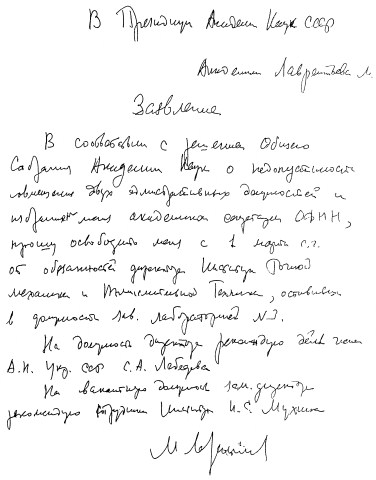 В Президиум Академии Наук СССР
Академика Лаврентьева М.
Заявление
В соответствии с решением Общего
Собрания Академии Наук о недопустимости
совмещения двух административных должностей и
избранием меня академиком секретарем ОФМН,
прошу освободить меня с 1 марта с.г.
от обязанностей директора Института Точной
механики и Вычислительной Техники, оставив
в должности зав. лабораторией N
На должность директора рекомендую действ. члена
А.Н. Укр. ССР С.А. Лебедева
На вакантную должность зам. директора
рекомендую сотрудника Института И.С. Мухина
М Лаврентьев